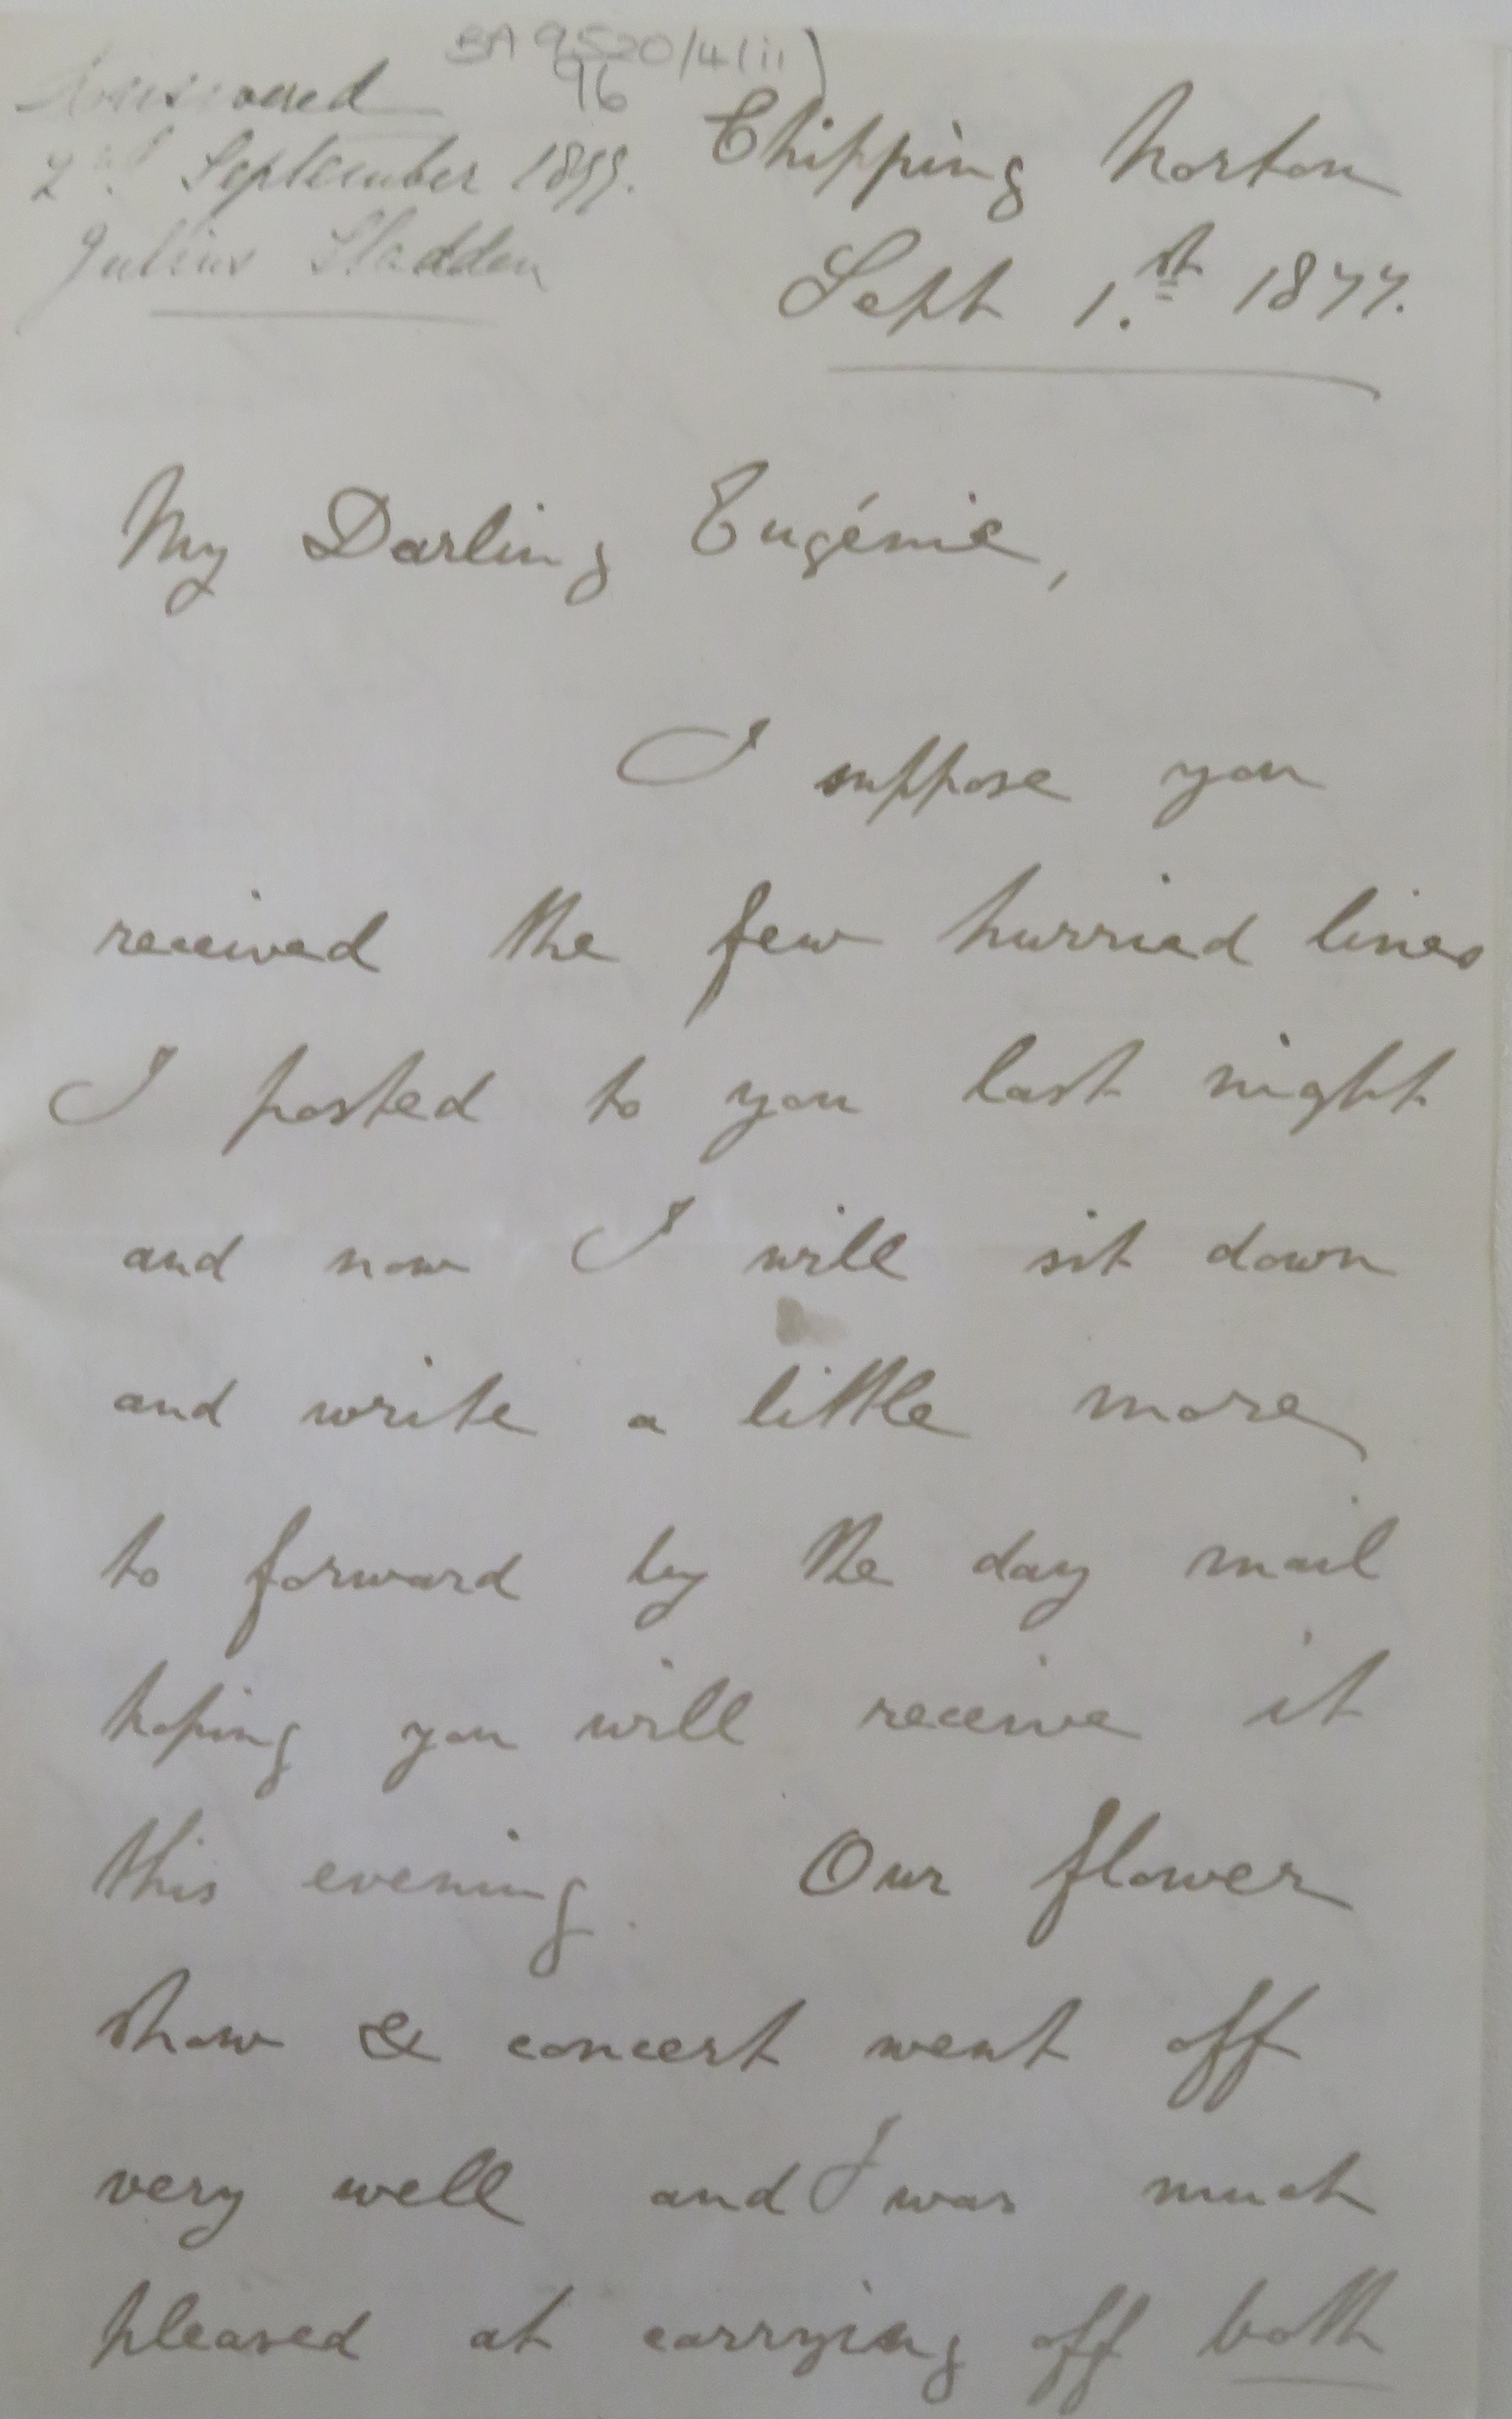 BA 9520/4(ii)
96
Answered
2nd September 1877.
Julius Sladden
Chipping Norton
Sept 1.st 1877.
My Darling Eugénie,
I suppose you
received the few hurried lines
I posted to you last night
and now I will sit down
and write a little more
to forward by the day mail
hoping you will receive it
this evening. Our flower
show & concert went off
very well and I was much
pleased at carrying off both